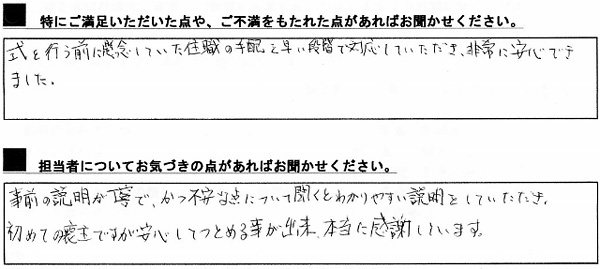 ■ 特にご満足いただいた点や、ご不満をもたれた点があればお聞かせください。
式を行う前に懸念していた住職の手配を早い段階で対応していただき、非常に安心でき
ました。
■ 担当者についてお気づきの点があればお聞かせください。
事前の説明が丁寧で、かつ不安な点について聞くとわかりやすい説明をしていただき、
初めての喪主ですが安心してつとめる事が出来、本当に感謝しています。